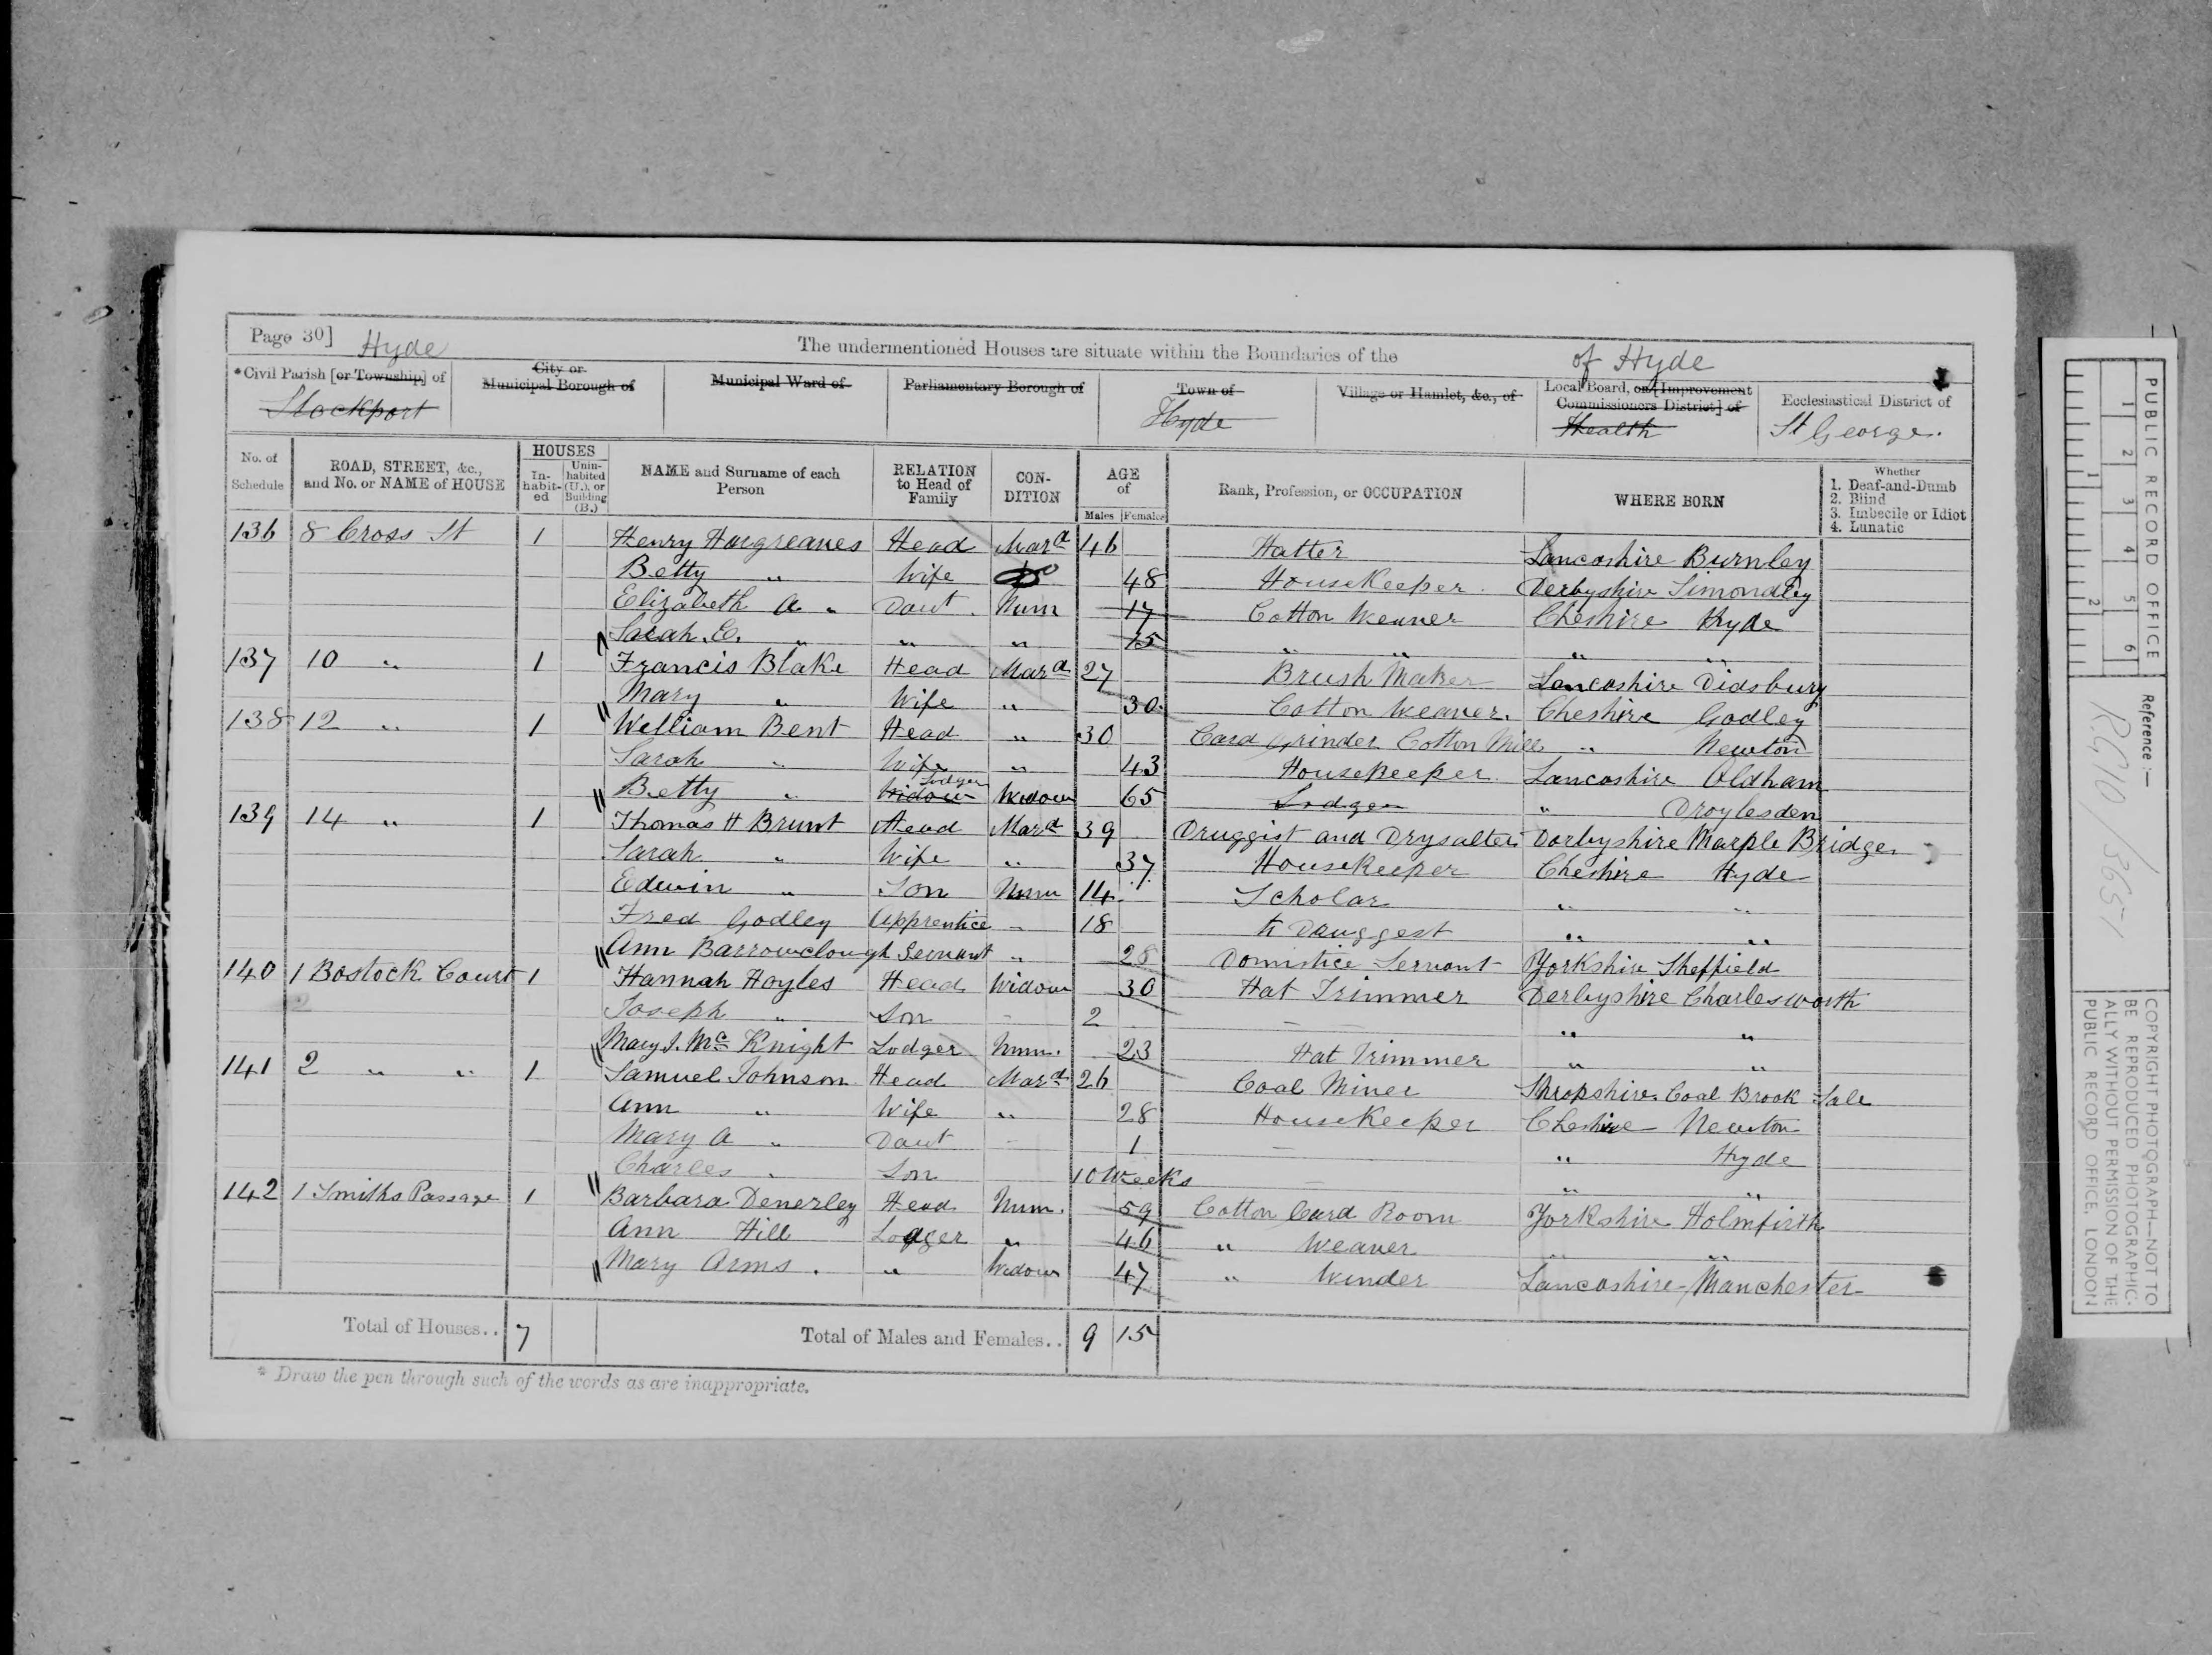 Page 30] Hyde The undermentioned Houses are situate within the Boundaries of the of Hyde
*Civil Parish [or Township] of City or Municipal Borough of Municipal Ward of Parliamentary Borough of Town of Village or Hamlet, &c., of Local Board, or [Improvement Commissioners District] of Ecclesiastical District of
Stockport Hyde Health St George.
No. of Schedule ROAD, STREET, &c., and No. or NAME of HOUSE HOUSES Inhabited Uninhabited (U.), or Building (B.) NAME and Surname of each Person RELATION to Head of Family CONDITION AGE of Males Females Rank, Profession, or OCCUPATION WHERE BORN Whether
1. Deaf-and-Dumb
2. Blind
3. Imbecile or Idiot
4. Lunatic
136 8 Cross St 1 Henry Hargreaves Head Mard 46 Hatter Lancashire Burnley
Betty " Wife Do 48 HouseKeeper. Derbyshire Simondley
Elizabeth A " Daut. Unm 17 Cotton Weaver Cheshire Hyde
Sarah. E. " " " 15 " " " "
137 10 " 1 Francis Blake Head Mard 27 Brush Maker Lancashire Didsbury
Mary " Wife " 30 Cotton Weaver. Cheshire Godley
138 12 " 1 William Bent Head " 30 Card Grinder Cotton Mill " Newton
Sarah " Wife " 43 HouseKeeper Lancashire Oldham
Betty " Widow Lodger Widow 65 Lodger " Droylesden
139 14 " 1 Thomas H Brunt Head Mard 39 Druggist and Drysalter Derbyshire Marple Bridge
Sarah " Wife " 37 HouseKeeper Cheshire Hyde
Edwin " Son Unm 14 Scholar " "
Fred Godley Apprentice " 18 to Druggest " "
Ann Barrowclough Servant " 28 Domistice Servant Yorkshire Sheffield
140 1 Bostock Court 1 Hannah Hoyles Head Widow 30 Hat Trimmer Derbyshire Charlesworth
Joseph " Son - 2 - - " "
Mary J. Mc Knight Lodger Unm. 23 Hat Trimmer " "
141 2 " " 1 Samuel Johnson Head Mard 26 Coal Miner Shropshire Coal Brook Dale
Ann " Wife " 28 HouseKeeper Cheshire Newton
Mary A " Daut - 1 - " Hyde
Charles " Son 10 Weeks - " "
142 1 Smiths Passage 1 Barbara Denerley Head Unm. 59 Cotton Card Room Yorkshire Holmfirth
Ann Hill Lodger " 46 " Weaver " "
Mary Arms. " Widow 47 " Winder Lancashire Manchester
Total of Houses.. 7 Total of Males and Females.. 9 15
* Draw the pen through such of the words as are inappropriate.
PUBLIC RECORD OFFICE
1 2 3 4 5 6
1 2
Reference:-
RG10/3651
COPYRIGHT PHOTOGRAPH—NOT TO
BE REPRODUCED PHOTOGRAPHIC-
ALLY WITHOUT PERMISSION OF THE
PUBLIC RECORD OFFICE, LONDON